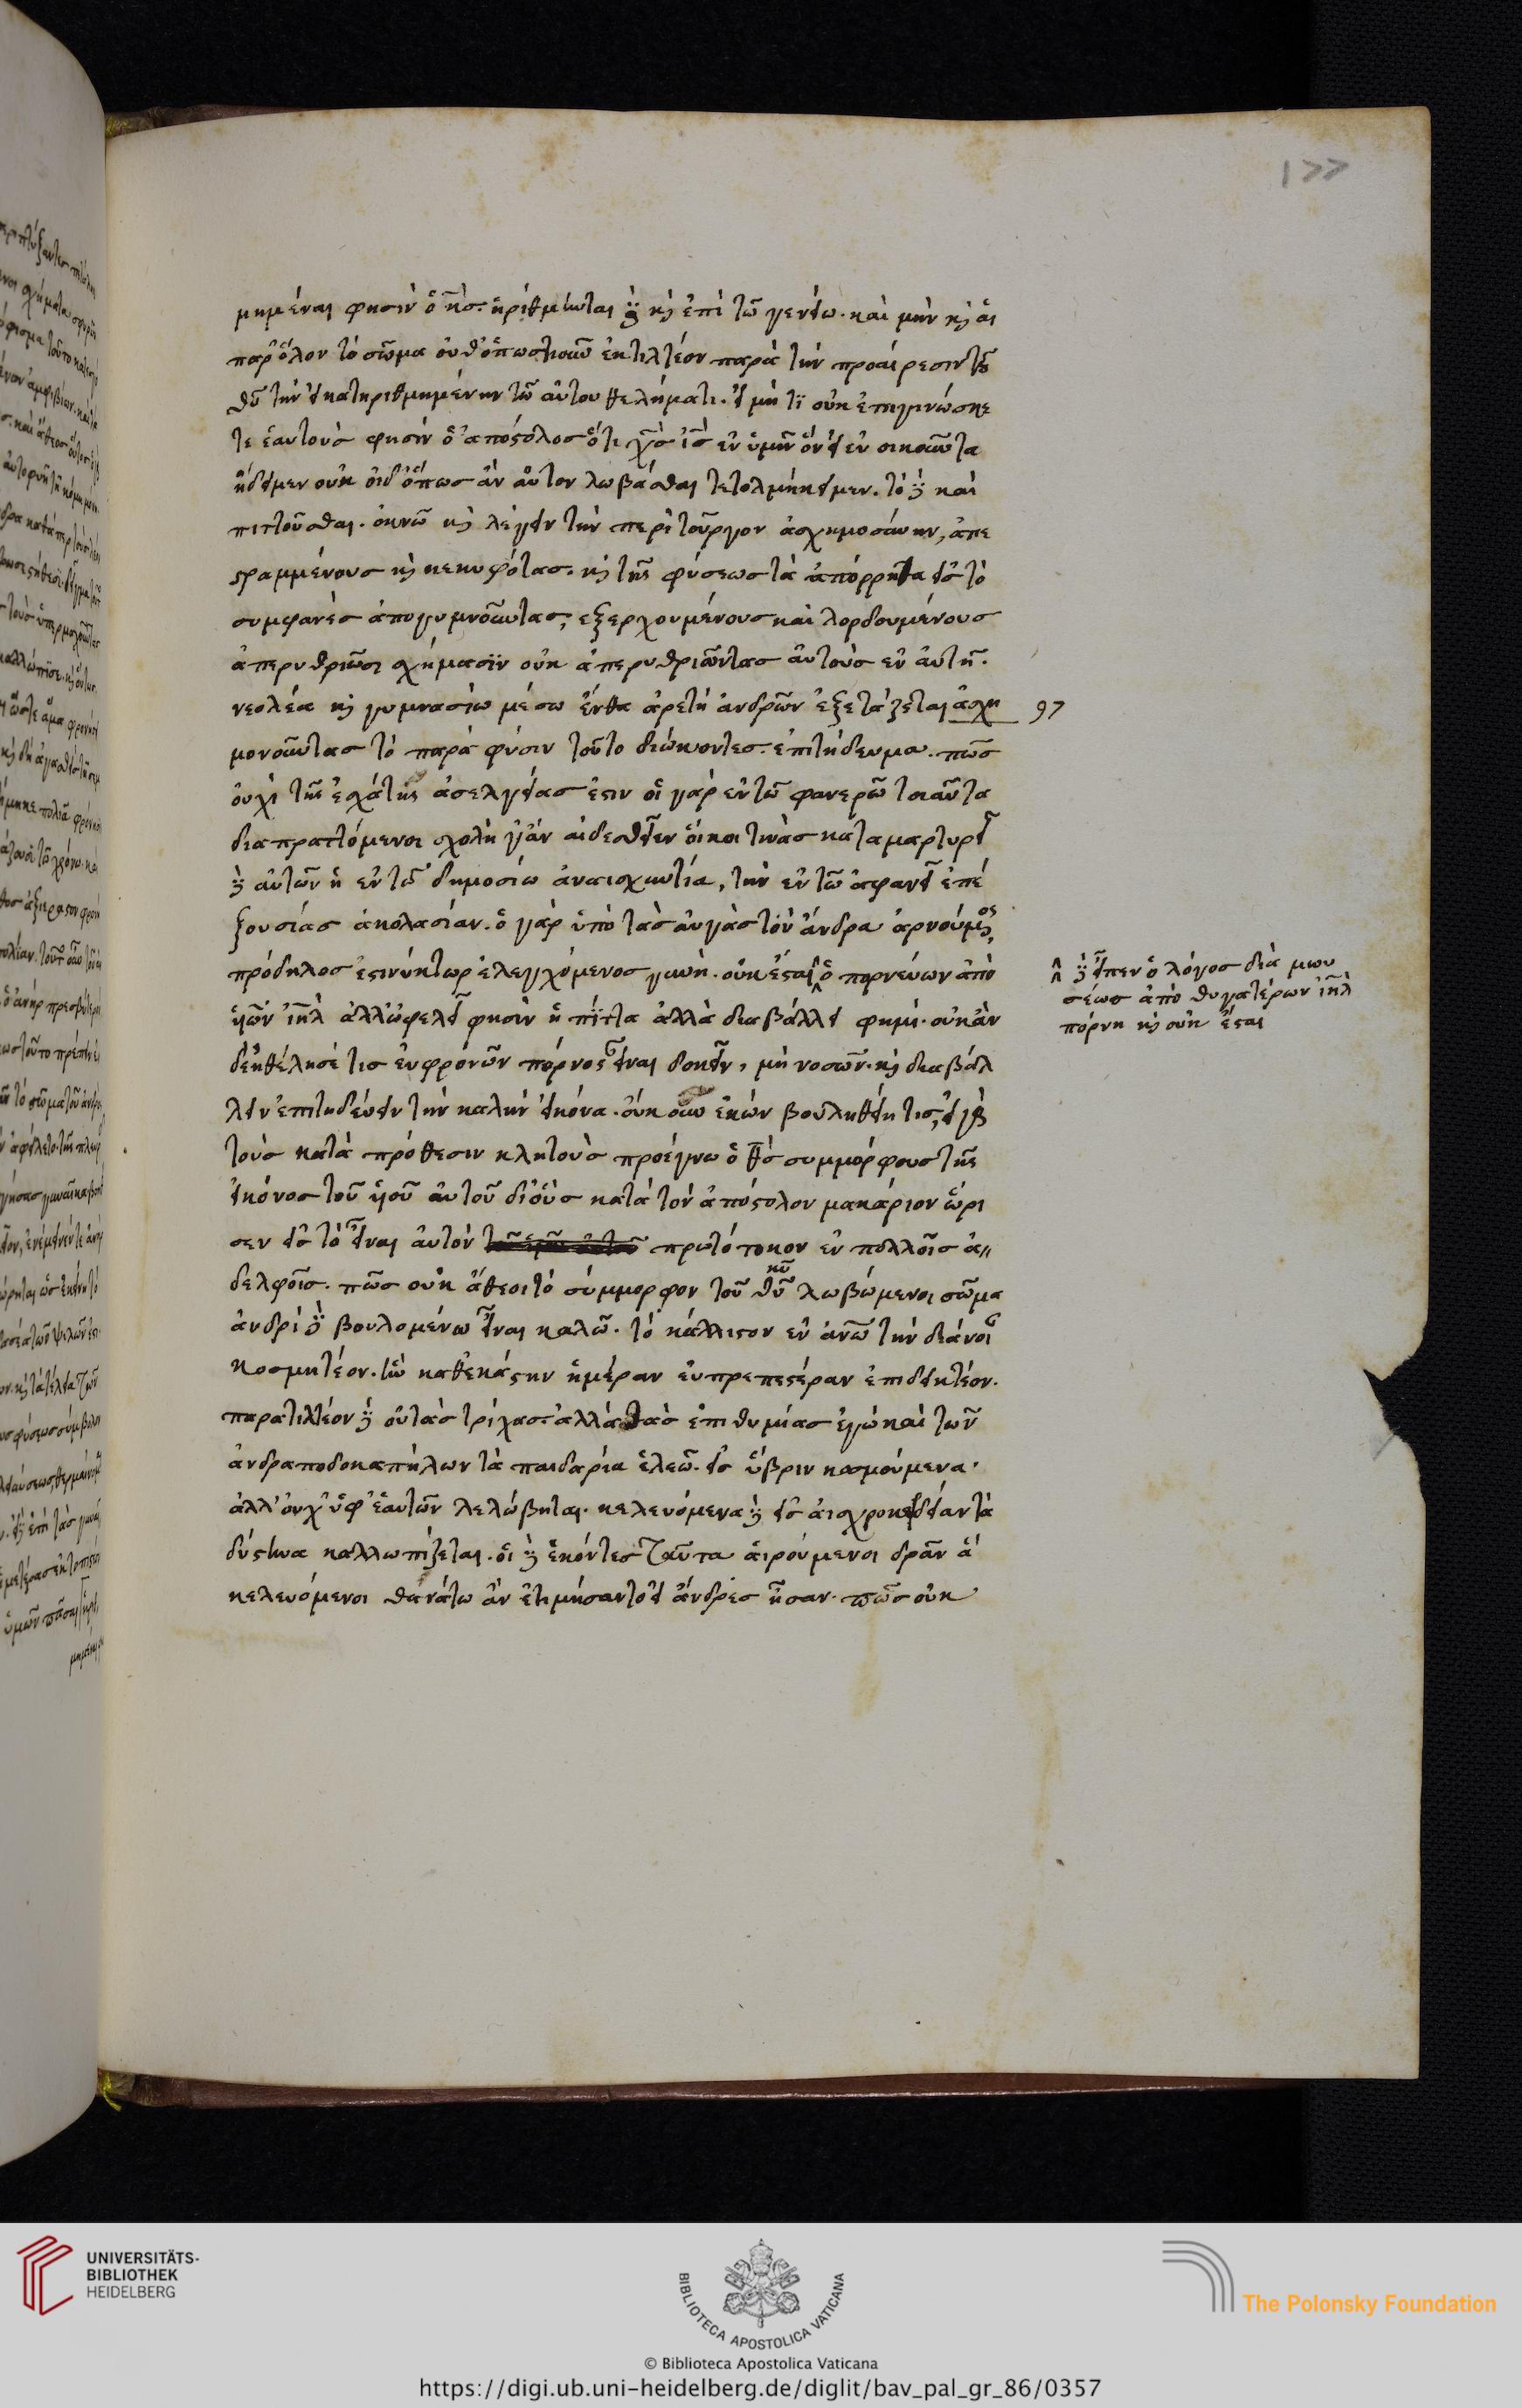 177
μημέναι φησὶν ὁ κ̅ς̅. ἠρίθμηνται δὲ κὴ ἐπὶ τῶ γενείω. καὶ μὴν κὴ αἱ
παρ' ὅλον τὸ σῶμα οὐδ' ὁπωστιοῦν ἐκτιλτέον παρὰ τὴν προαίρεσιν τοῦ
θ̅υ̅ τὴν εἰ κατηριθμημένην τῶ αὐτου θελήματι. εἰ μὴ τὶ οὐκ ἐπιγινώσκε
τε ἑαυτοὺς φησὶν ὁ ἀπόστολος ὅτι χ̅ς̅ ἰ̅ς̅ ἐν ὑμῖν ὃν εἰ ἐν οικοῦντα
ἤδειμεν οὐκ οἶδ' ὅπως ἂν αὐτον λωβᾶσθαι τετολμήκειμεν. τὸ δὲ καὶ
πιττοῦσθαι. ὀκνῶ κὴ λέγειν τὴν περὶ τοὖργον ἀσχημοσύνην, ἀπε
στραμμένους κὴ κεκυφότας. κὴ τῆς φύσεως τὰ ἀπόρρητα εἰς τὸ
συμφανὲς ἀπογυμνοῦντας, ἐξερχουμένους καὶ λορδουμένους
ἀπερυθριῶσι σχήμασϊν οὐκ ἀπερυθριῶντας αὐτοὺς ἐν αὐτῆ.
νεολέα κὴ γυμνασίω μέσω ἔνθα ἀρετὴ ἀνδρῶν ἐξετάζεται ἀσχη
97
μονοῦντας τὸ παρὰ φύσιν τοῦτο διώκοντες. ἐπιτήδευμα. πῶς
οὐχὶ τῆς ἐσχάτης ἀσελγείας ἐστιν οἱ γὰρ ἐν τῶ φανερῶ τοιαῦτα
διαπραττόμενοι σχολῆ γ' ἂν αἰδεσθεῖεν οἴκοι τινὰς καταμαρτυρεῖ
δὲ αὐτῶν ἡ ἐν τῶ δημοσίω ἀναισχυντία, τὴν ἐν τῶ ἀφανεῖ ἐπέ
ξουσίας ἀκολασίαν. ὁ γὰρ ὑπὸ τὰς αὐγὰς τὸν ἄνδρα ἀρνούμενος,
πρόδηλος ἐστι νύκτωρ ἐλεγχόμενος γυνὴ. οὐκ ἔσται ὁ πορνεύων ἀπὸ
^ δὲ εἶπεν ὁ λόγος διὰ μωυ
σέως ἀπὸ θυγατέρων ἰ̅η̅λ̅
πόρνη κὴ οὐκ ἔσται
ὑῶν ἰ̅η̅λ̅ ἀλλ' ὠφελεῖ φησὶν ἡ πίττα ἀλλὰ διαβάλλει φημὶ. οὐκ ἂν
δὲ ἠθέλησέ τις εὐφρονῶν πόρνος εἶναι δοκεῖν, μὴ νοσῶν. κὴ διαβάλ
λειν ἐπιτηδεύειν τὴν καλὴν εἰκόνα. οὐκ οὖν ἑκὼν βουληθείη τις, εἰ γὰρ
τοὺς κατὰ πρόθεσιν κλητοὺς προέγνω ὁ θ̅ς̅ συμμόρφους τῆς
εἰκόνος τοῦ ὑοῦ αὐτοῦ δι' οὓς κατὰ τὸν ἀπόστολον μακάριον ὥρι
σεν εἰς τὸ εἶναι αὐτὸν πρωτότοκον ἐν πολλοῖς ἀ
δελφοῖς. πῶς οὐκ ἄθεοι τὸ σύμμορφον τοῦ θ̅υ̅ κ̅υ̅ λωβώμενοι σῶμα
ἀνδρὶ δὲ βουλομένω εἶναι καλῶ. τὸ κάλλιστον ἐν ἀν̅ω̅ τὴν διάνοιαν
κοσμητέον. ἣν καθ' ἑκάστην ἡμέραν εὐπρεπεστέραν ἐπιδεικτέον.
παρατιλτέον δὲ οὐ τὰς τρίχας ἀλλὰ τὰς ἐπιθυμίας ἐγὼ καὶ τῶν
ἀνδραποδοκαπήλων τὰ παιδαρία ἐλεῶ. εἰς ὕβριν κοσμούμενα.
ἀλλ' οὐχ ὑφ' ἑαυτῶν λελώβηται. κελευόμενα δὲ εἰς αἰσχροκερδείαν τὰ
δύστηνα καλλωπίζεται. οἱ δὲ ἑκόντες ταῦτα αἱρούμενοι δρᾶν ἃ
κελευόμενοι θανάτω ἂν ἐτιμήσαντο εἰ ἄνδρες ἦσαν. πῶς οὐκ
UNIVERSITÄTS-
BIBLIOTHEK
HEIDELBERG
BIBLIOTECA APOSTOLICA VATICANA
The Polonsky Foundation
© Biblioteca Apostolica Vaticana
https://digi.ub.uni-heidelberg.de/diglit/bav_pal_gr_86/0357